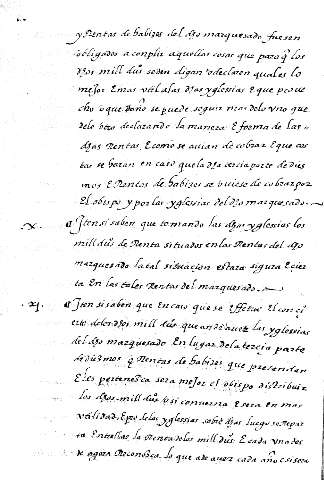 y Rentas de habizes del dho marquesado fuesen
obligados a conplir aquellas cosas que para q los
dhos mill dus se den digan o declaren qual es lo
mejor E mas util a las dhas yglesias E que prove
cho o que daño se puede seguir mas de lo uno que
de lo otro declarando la manera E forma de las
dhas Rentas. E como se avian de cobrar E que cos
tas se haran en caso que la dha tercia parte de dies
mos E Rentas de habizes se oviese de cobrar por
El obispo y por las yglesias del dho marquesado
X. Iten si saben que tomando las dhas yglesias los
mill dus de Renta situados en las Rentas del dho
marquesado la tal situacion estara sigura E cier
ta En las tales Rentas del marquesado
XI. Iten si saben que En caso que se Effetue El conci
erto de los dhos mill dus que an de aver las yglesias
del dho marquesado En lugar de la tercia parte
de diezmos E Rentas de habizes que pretenden
Elles pertenesca sera mejor el obispo distribuir
los dhos mill dus si converna E sera en mas
utilidad E pro de las yglesias sobre dhas luego se Repar
ta Entrellas la Renta de los mill dus E cada una des
de agora Reconosca lo que a de aver cada año